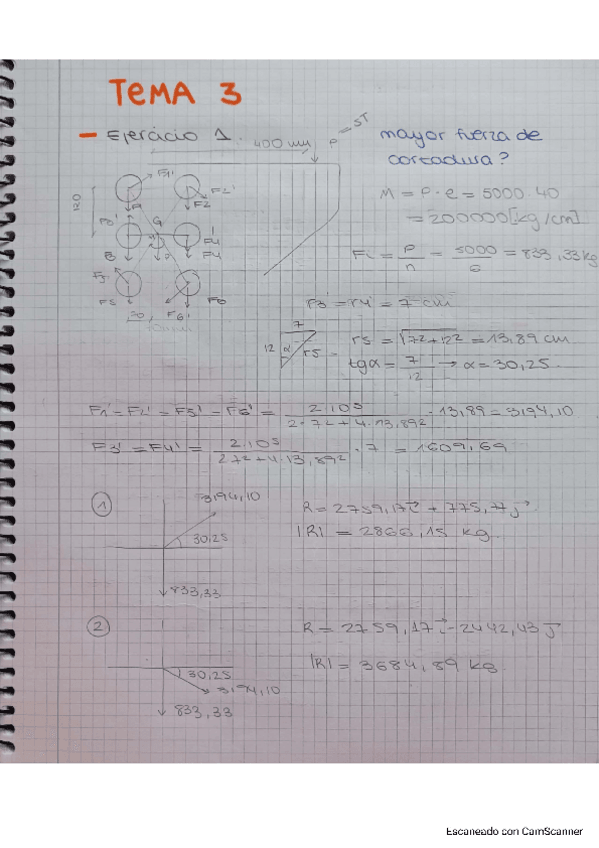 TEMA 3
- Ejercicio 1.
400 mm P = 5T
mayor fuerza de
cortadura?
120
F1' F2'
F2
G
F3' F4'
B F4
F5 F6
F6'
M = P · e = 5000 · 40
= 200000 [kg/cm]
Fi = P/n = 5000/6 = 833,33 kg
r3' = r4' = 7 cm
7
12 α r5
r5 = √7²+12² = 13,89 cm
tgα = 7/12 → α = 30,25
F1' = F2' = F5' = F6' = 2.10⁵ / 2·7² + 4·13,89² · 13,89 = 3194,10
F3' = F4' = 2.10⁵ / 2·7² + 4·13,89² · 7 = 1609,69
① 3194,10
30,25
833,33
R = 2759,17i + 775,77j
|R| = 2866,15 kg
② 30,25
3194,10
833,33
R = 2759,17i - 2442,43j
|R| = 3684,89 kg
Escaneado con CamScanner